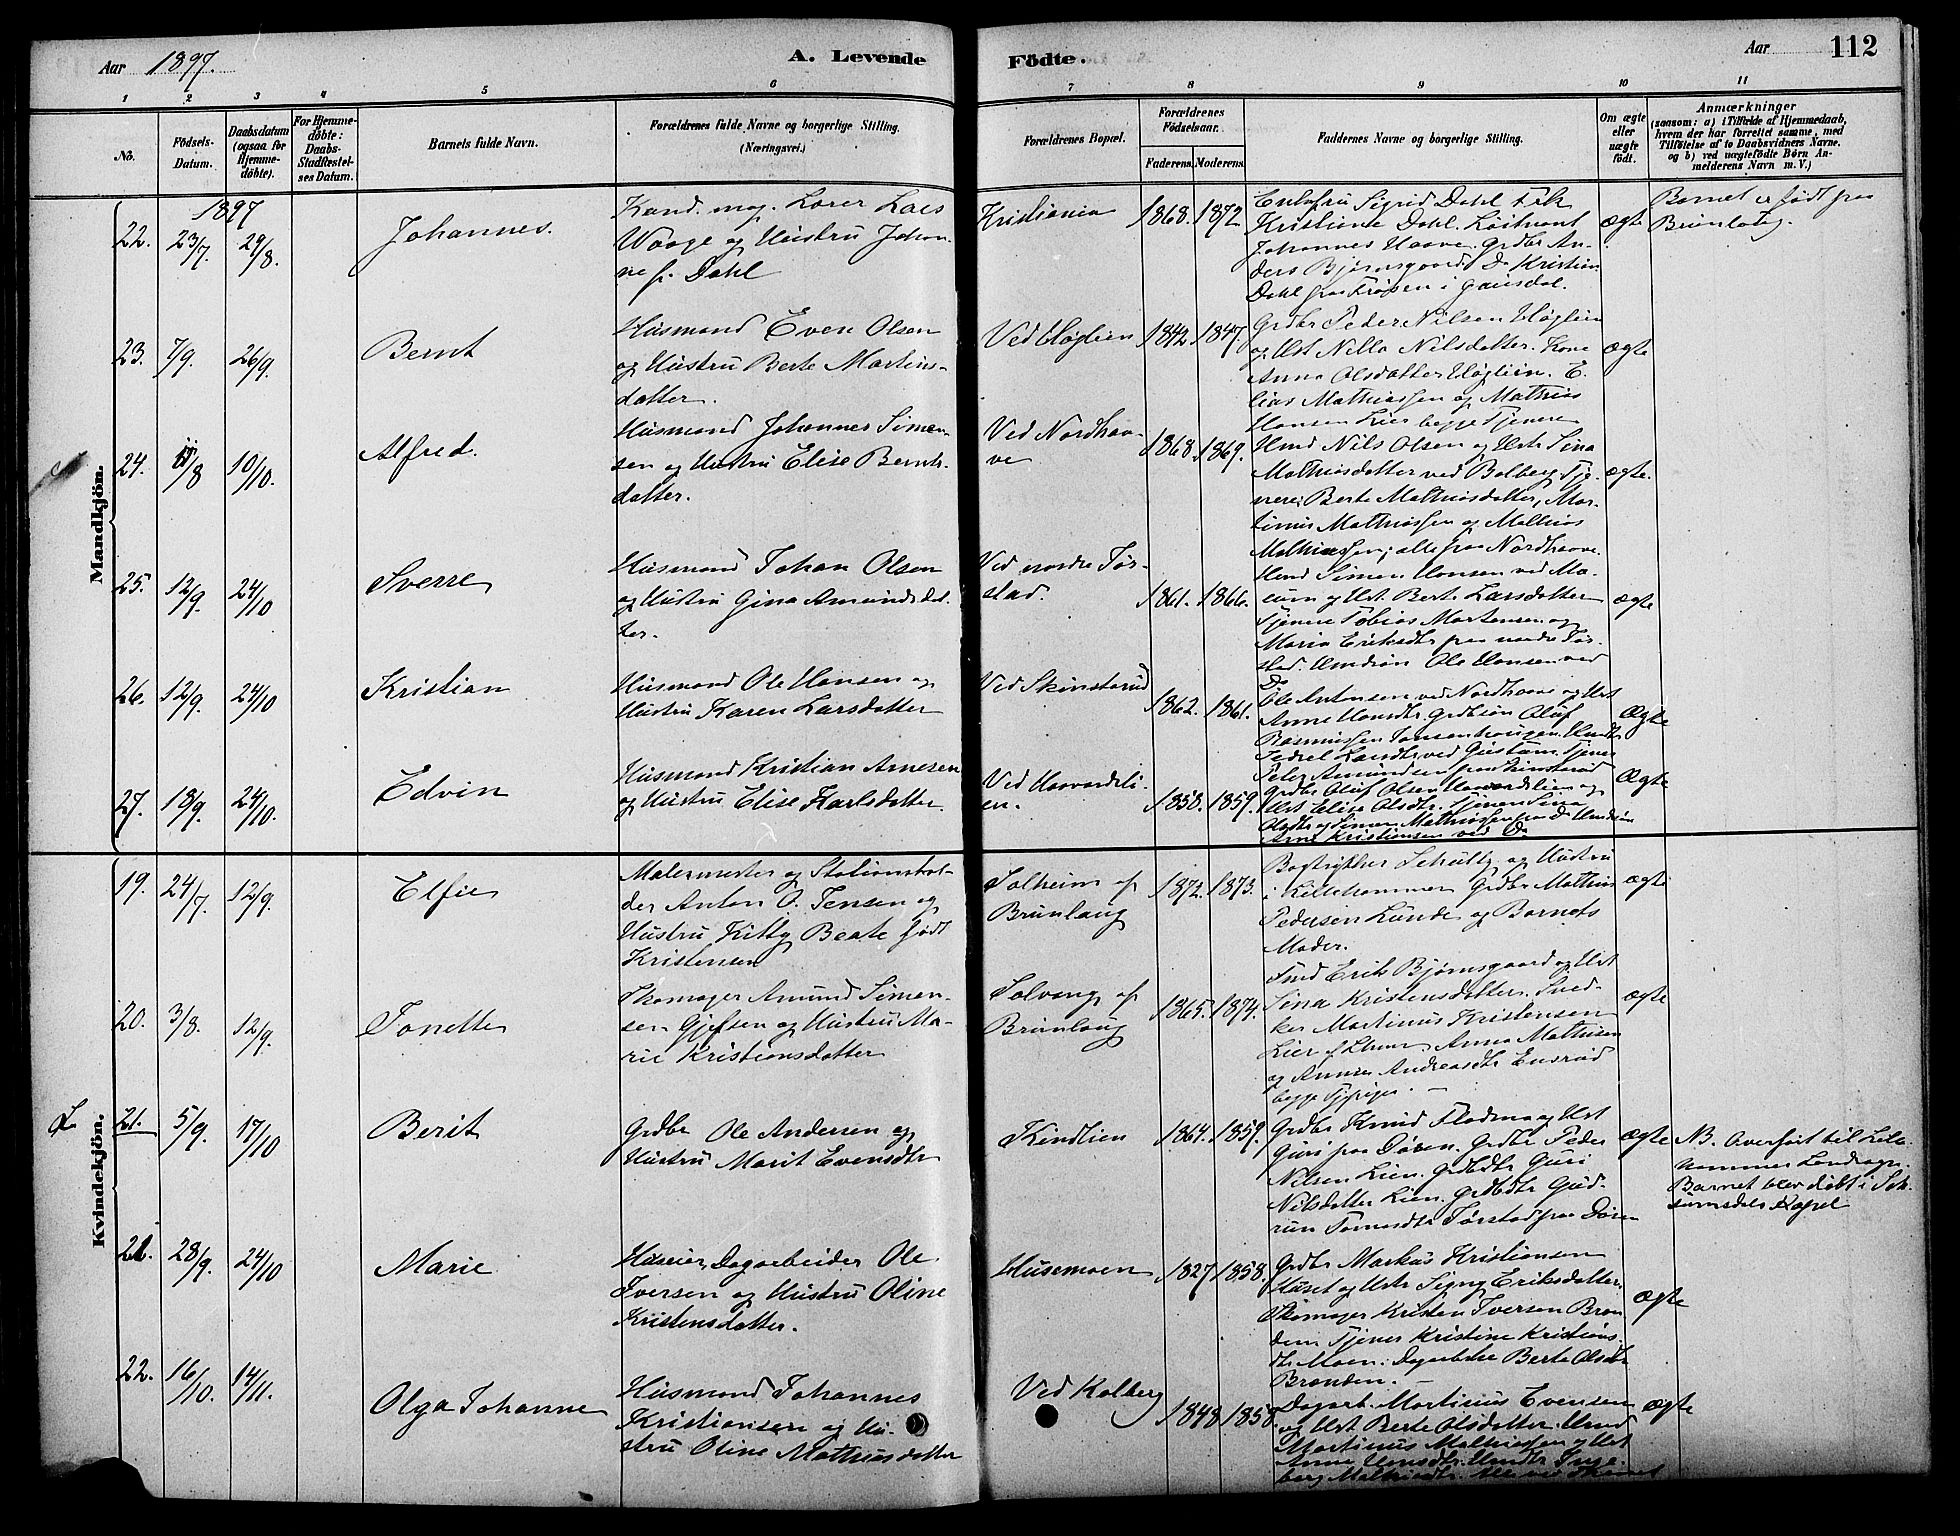 Aar 1897.
A. Levende
Födte.
Aar
112
1 2 3 4 5 6 7 8 9 10 11
No.
Födsels-Datum.
Daabsdatum (ogsaa for Hjemmedöbte).
For Hjemmedöbte: Daabs-Stadfæstelses Datum.
Barnets fulde Navn.
Forældrenes fulde Navne og borgerlige Stilling.
(Næringsvei.)
Forældrenes Bopæl.
Forældrenes Födselsaar.
Faderens. Moderens.
Faddernes Navne og borgerlige Stilling.
Om ægte eller uægte födt.
Anmærkninger
(saasom: a) i Tilfælde af Hjemmedaab,
hvem der har forrettet samme, med
Tilföielse af to Daabsvidners Navne,
og b) ved uægtefödte Börn Anmelderens Navn m. V.)
Mandkjön.
1897
22. 23/7 29/8. Johannes.
Kand. mag. Lærer Lars
Waage og Hustru Johan-
ne f. Dahl
Kristiania 1868. 1872
Enkefru Sigrid Dahl Frk
Kristiane Dahl. Løitnant
Johannes Haave. Grdbr An-
ders Bjørnsgaard. Do Kristian
Dahl fra Frøisen i Gausdal.
ægte
Barnet er født paa
Brunlaug.
23. 7/9. 26/9. Bernt
Husmand Even Olsen
og Hustru Berte Martins-
datter.
Ved Høglien 1842. 1847.
Grdbr Peder Nilsen Høglien
og Hst Nilla Nilsdatter. Kone
Anna Olsdatter Høglien. E-
lias Mathiassen og Mathias
Hansen Lier begge Tjenere
ægte
24. 11/8 10/10. Alfred.
Husmand Johannes Simen-
sen og Hustru Elise Bernts-
datter.
Ved Nordhaa-
ve 1868. 1869.
Hmd Nils Olsen og Hst Sina
Mathiasdatter ved Bolberg. Tje-
nere: Berte Mathiasdatter, Mar-
tinus Mathiassen og Mathias
Mathiassen; alle fra Nordhaave.
ægte.
25. 12/9. 24/10 Sverre
Husmand Johan Olsen
og Hustru Gina Amundsdat-
ter.
Ved nordre Tør-
stad. 1861. 1866.
Hmd Simen Hansen ved Ma-
rum og Hst Berte Larsdatter
Tjenere Tobias Martensen og
Maria Eriksdtr fra nordre Tør-
stad. Hmdsøn Ole Hansen ved
Do
ægte
26. 12/9. 24/10 Kristian
Husmand Ole Hansen og
Hustru Karen Larsdatter
Ved Skinstarud
1862. 1861.
Ole Antonsen ved Nordhaave og Hst
Anne Hansdtr. Grdbsøn Oluf
Rasmussen Jonsenhaugen. Hmdtr
Pedrel Larsdtr ved Gustum. Tjener
Peter Amundsen fra Skinstarud
Ægte
27. 18/9. 24/10. Edvin
Husmand Kristian Arnesen
og Hustru Elise Karlsdatter.
Ved Haavardsli-
en. 1858. 1859.
Grdbr Oluf Olsen Haavardslien og
Hst Elise Olsdtr. Tjener Sina
Olsdtr og Simen Mathiassen fra Do Hmdsøn
Arne Kristiansen ved Do
Ægte
Kvindekjön.
19. 24/7. 12/9. Elfie
Malermester og Stationshol-
der Anton O. Jensen og
Hustru Kitty Beate født
Kristensen
Solheim af
Brunlaug 1872. 1873.
Bogtrykker Schultz og Hustru
i Lillehammer Grdbr Mathias
Pedersen Lunde og Barnets
Moder.
Ægte
20. 3/8. 12/9. Jonette
Skomager Amund Simen-
sen Gjefsen og Hustru Ma-
rie Kristiansdatter
Solvang af
Brunlaug 1865. 1874.
Smed Erik Bjørnsgaard og Hst
Sina Kristensdatter. Sned-
ker Martinus Kristensen
Lier af Lhmr, Anna Mathisen
og Anna Andreasdtr Ensrud
begge Tjpiger.
ægte
21. 5/9. 17/10 Berit
Grdbr Ole Andersen og
Hustru Marit Evensdtr
Kindlien 1864. 1859.
Grdbr Knud Fladmo og Hst
Guri fra Døven. Grdbr Peder
Nilsen Lien. Grdbdtr Guri
Nilsdatter Lien. Grdbdtr Gud-
run Tomasdtr Tørstad fra Døven
Ægte
NB. Overført til Lille-
hammer Landsogn.
Barnet blev døbt i Sak-
sumsdals Kapel
21. 28/9. 24/10 Marie
Huseier, Dagarbeider Ole
Iversen og Hustru Oline
Kristensdatter.
Husemoen 1827 1858.
Grdbr Markus Kristiansen
Huset og Hst Signy Eriksdatter.
Skomager Kristen Iversen Bran-
den Tjener Kristine Kristians-
dtr Moen. Dagarbske Berte Olsdtr
Branden.
Ægte
22. 16/10. 14/11. Olga Johanne
Husmand Johannes
Kristiansen og Hu-
stru Oline Mathiasdatter
Ved Kolberg
1848 1858
Dagarb. Martinus Evensen
og Hst Berte Olsdatter. Hmd
Martinus Mathiassen og Hst
Anne Hansdtr. Hmdtr Inge-
borg Mathiasdtr.
Ægte